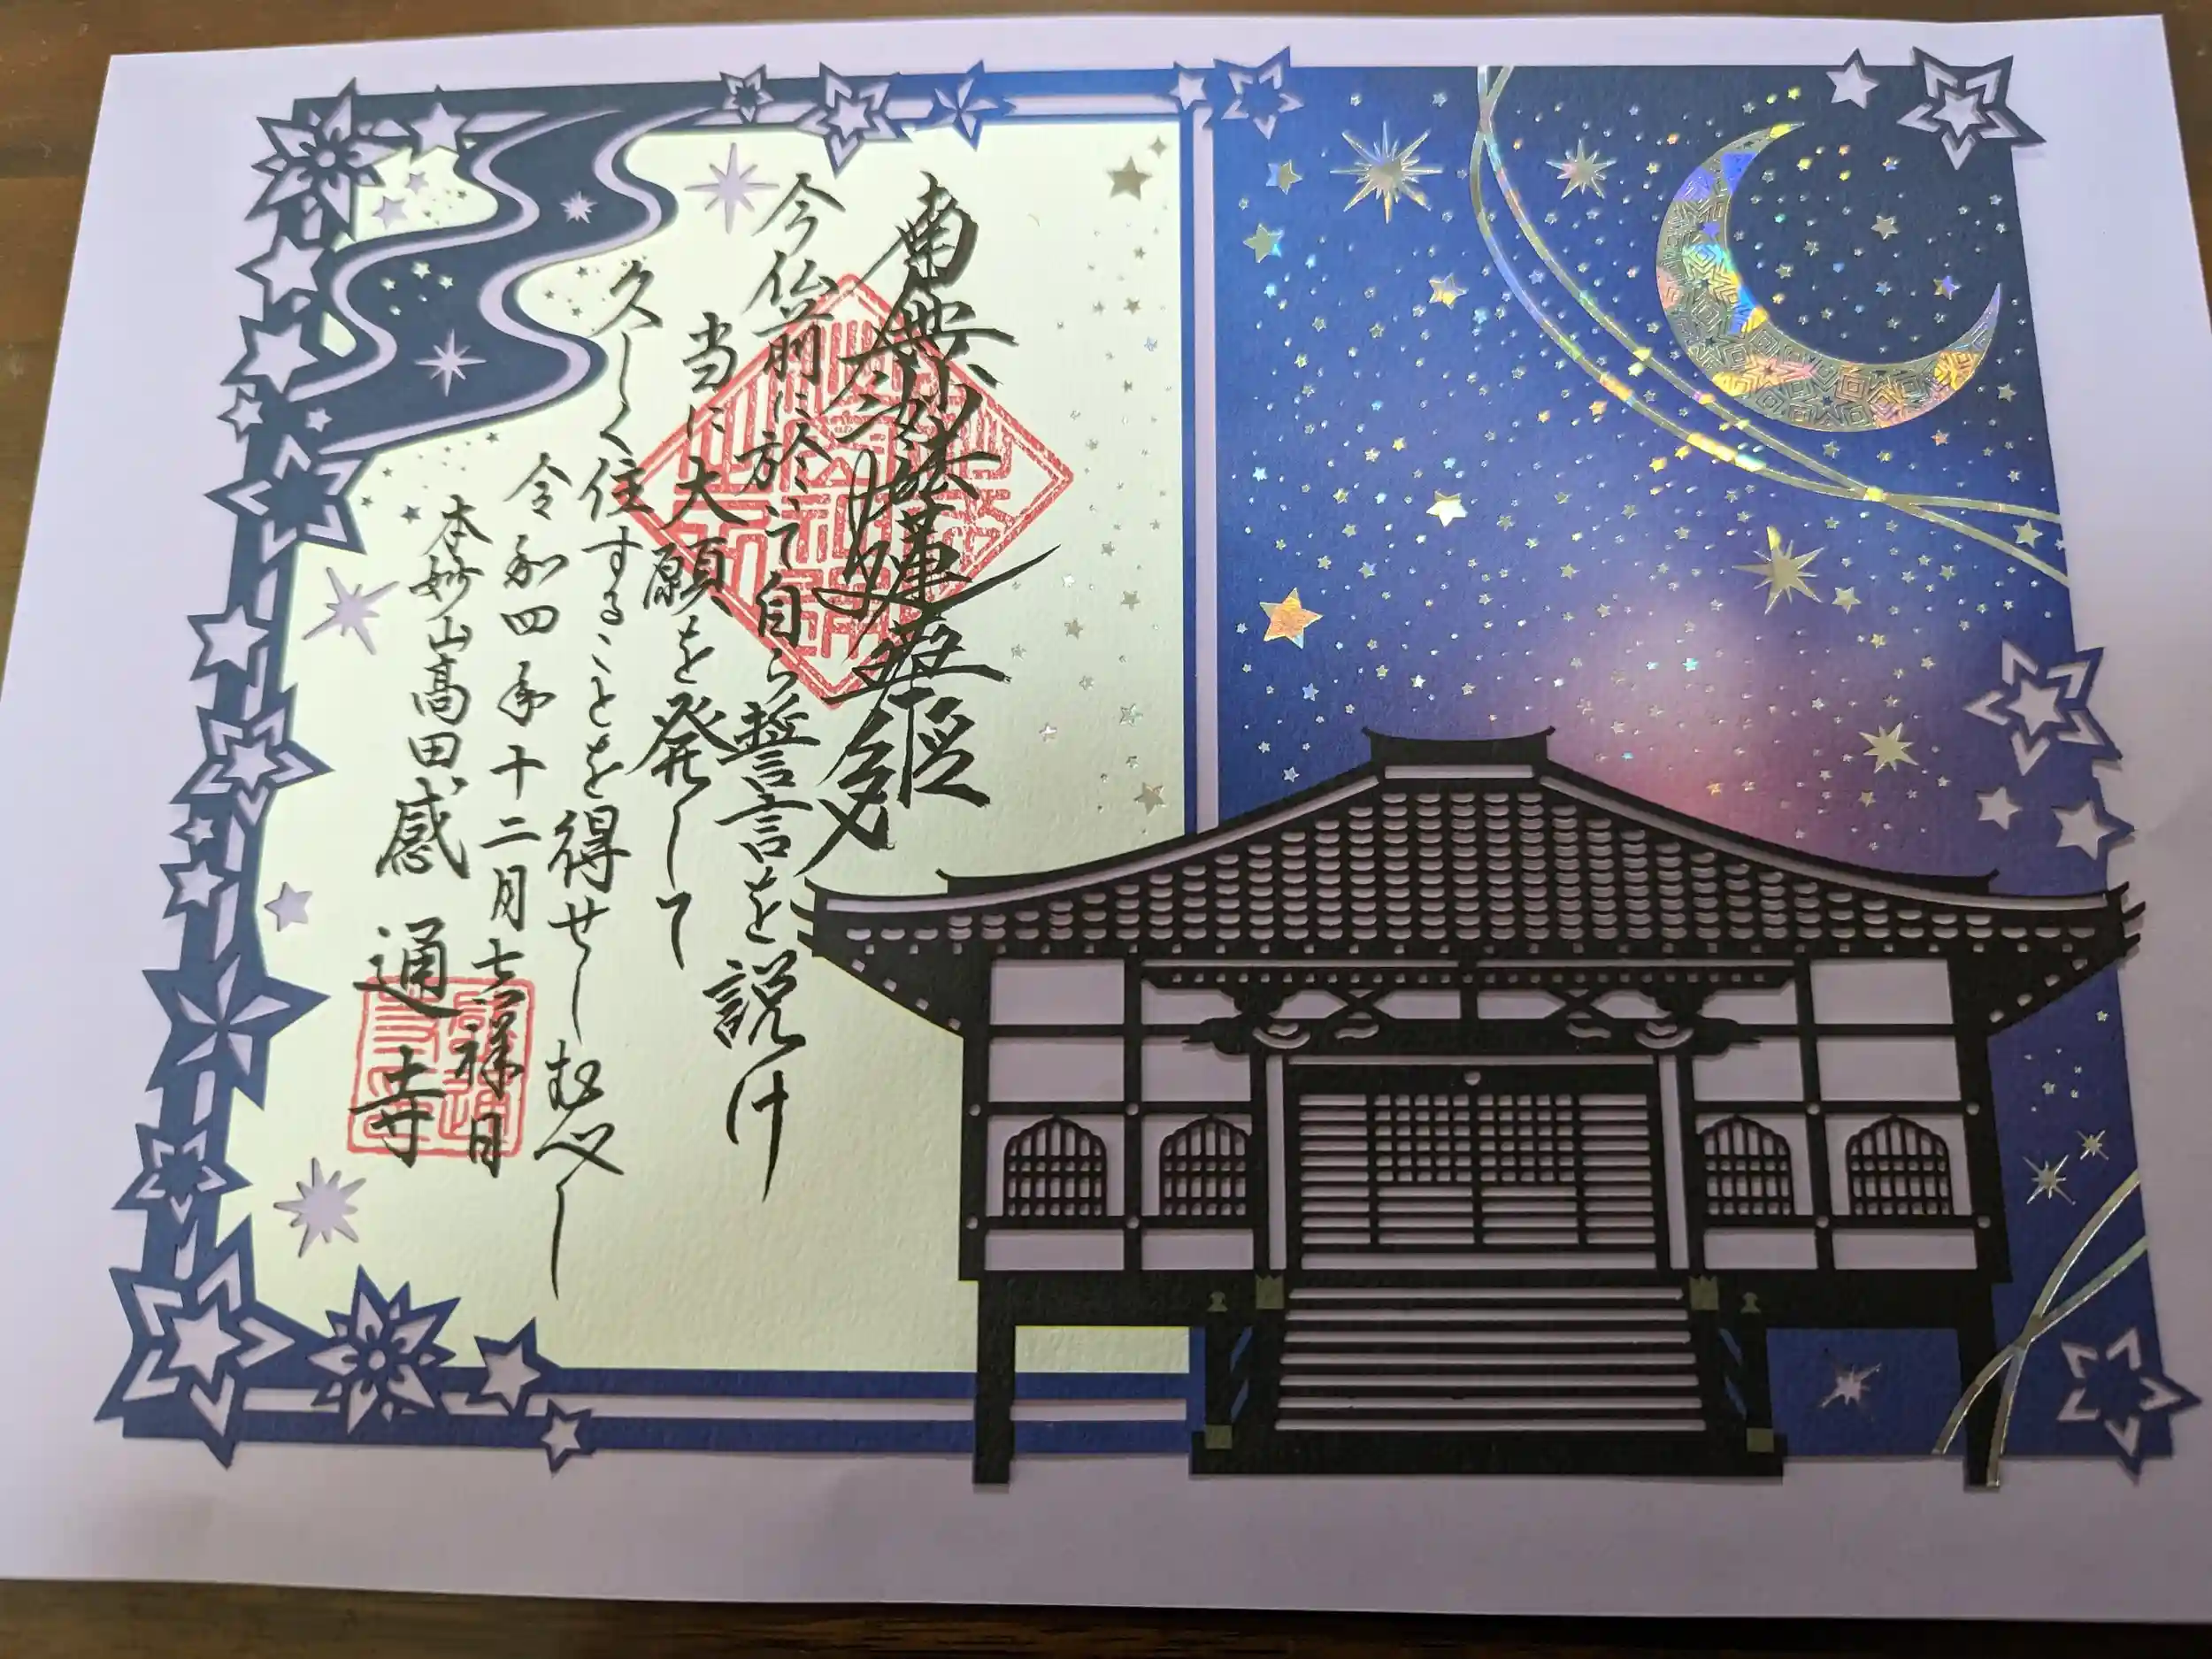 南無妙法蓮華経
今仏前に於て自ら誓言を説け
当に大願を発して
久しく住することを得せしむべし
令和四年十二月吉祥日
本妙山高田感通寺